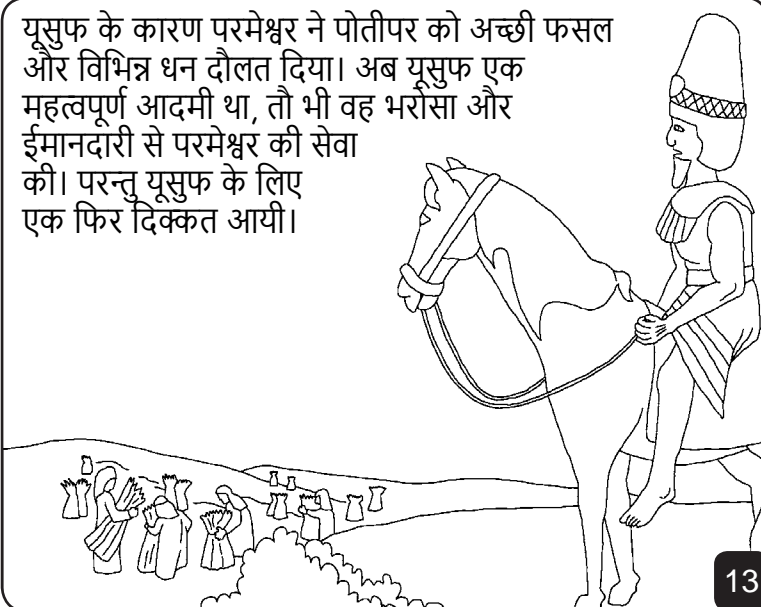 यूसुफ के कारण परमेश्वर ने पोतीपर को अच्छी फसल
और विभिन्न धन दौलत दिया। अब यूसुफ एक
महत्वपूर्ण आदमी था, तौ भी वह भरोसा और
ईमानदारी से परमेश्वर की सेवा
की। परन्तु यूसुफ के लिए
एक फिर दिक्कत आयी।
13